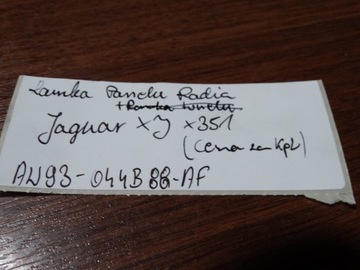 Ramka Panelu Radia
+ Ramka tunelu
Jaguar XJ x351
(cena za kpl)
AW93-044B88-AF